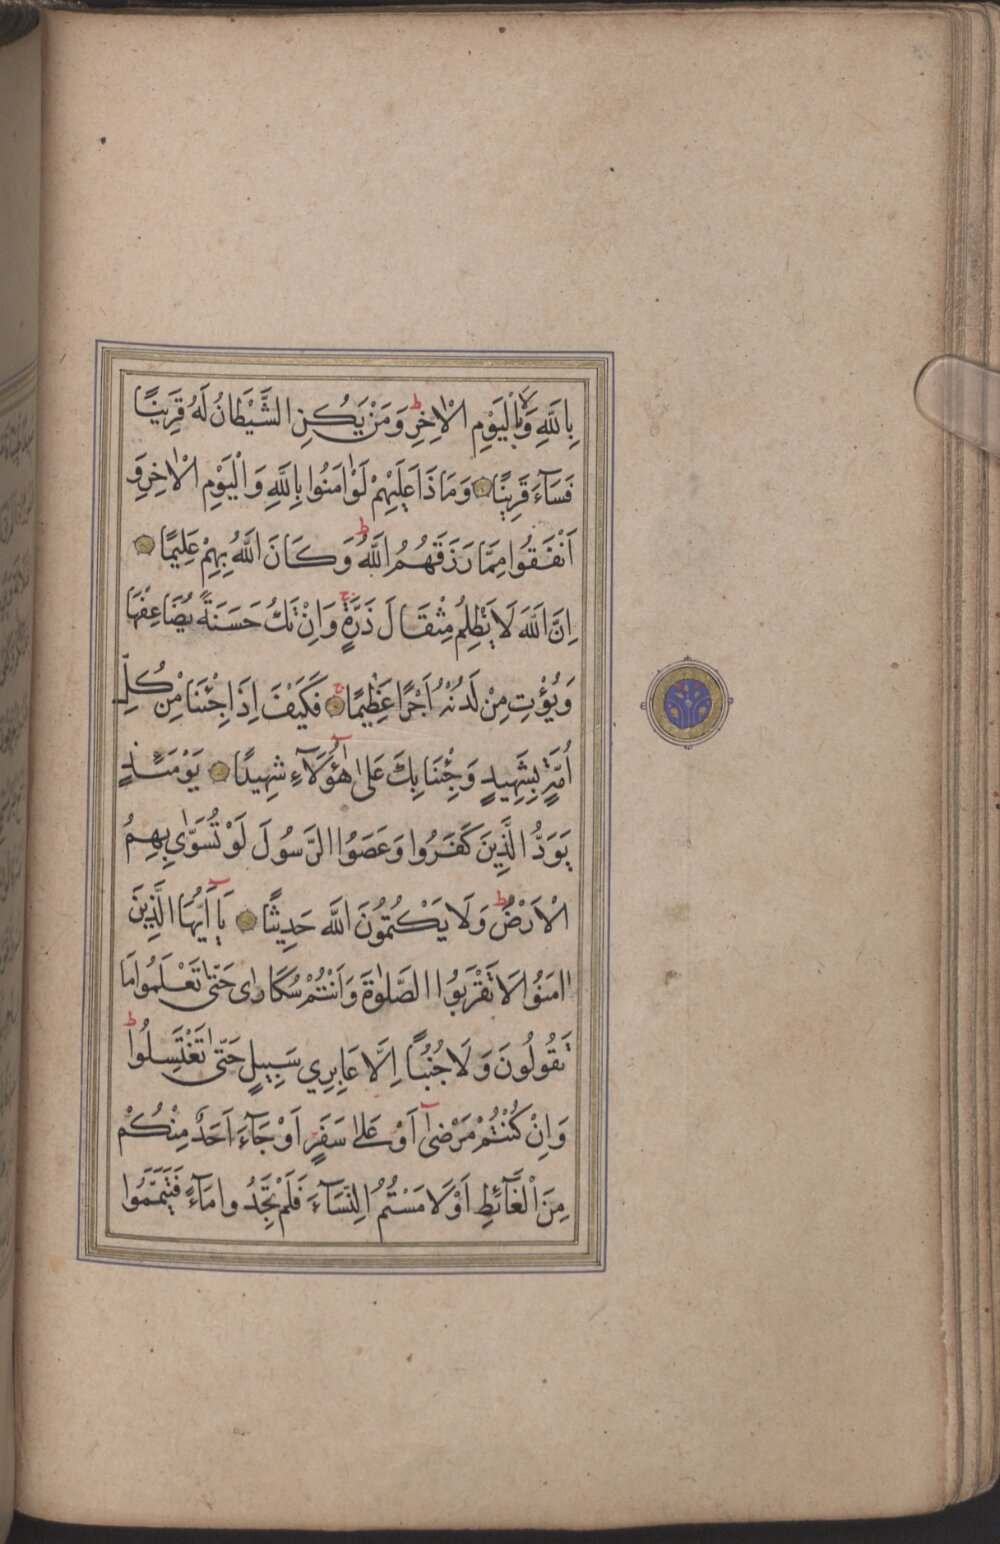 بِاللَّهِ وَلَا بِالْيَوْمِ الْاٰخِرِ وَمَنْ يَكُنِ الشَّيْطَانُ لَهُ قَرِينًا
فَسَآءَ قَرِينًا وَمَاذَا عَلَيْهِمْ لَوْ اٰمَنُوا بِاللَّهِ وَالْيَوْمِ الْاٰخِرِ وَ
اَنْفَقُوا مِمَّا رَزَقَهُمُ اللَّهُ وَكَانَ اللَّهُ بِهِمْ عَلِيمًا
اِنَّ اللَّهَ لَا يَظْلِمُ مِثْقَالَ ذَرَّةٍ وَاِنْ تَكُ حَسَنَةً يُضَاعِفْهَا
وَيُؤْتِ مِنْ لَدُنْهُ اَجْرًا عَظِيمًا فَكَيْفَ اِذَا جِئْنَا مِنْ كُلِّ
اُمَّةٍ بِشَهِيدٍ وَجِئْنَا بِكَ عَلٰى هٰٓؤُلَآءِ شَهِيدًا يَوْمَئِذٍ
يَوَدُّ الَّذِينَ كَفَرُوا وَعَصَوُا الرَّسُولَ لَوْ تُسَوّٰى بِهِمُ
الْاَرْضُ وَلَا يَكْتُمُونَ اللَّهَ حَدِيثًا يَآ اَيُّهَا الَّذِينَ
اٰمَنُوا لَا تَقْرَبُوا الصَّلٰوةَ وَاَنْتُمْ سُكَارٰى حَتّٰى تَعْلَمُوا مَا
تَقُولُونَ وَلَا جُنُبًا اِلَّا عَابِرِي سَبِيلٍ حَتّٰى تَغْتَسِلُوا
وَاِنْ كُنْتُمْ مَرْضٰٓى اَوْ عَلٰى سَفَرٍ اَوْ جَآءَ اَحَدٌ مِنْكُمْ
مِنَ الْغَآئِطِ اَوْ لَامَسْتُمُ النِّسَآءَ فَلَمْ تَجِدُوا مَآءً فَتَيَمَّمُوا